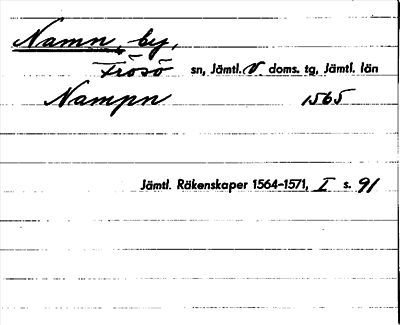 Namn, by,
Frösö sn, Jämtl. V. doms. tg, Jämtl. län
Nampn 1565
Jämtl. Räkenskaper 1564-1571, I s. 91